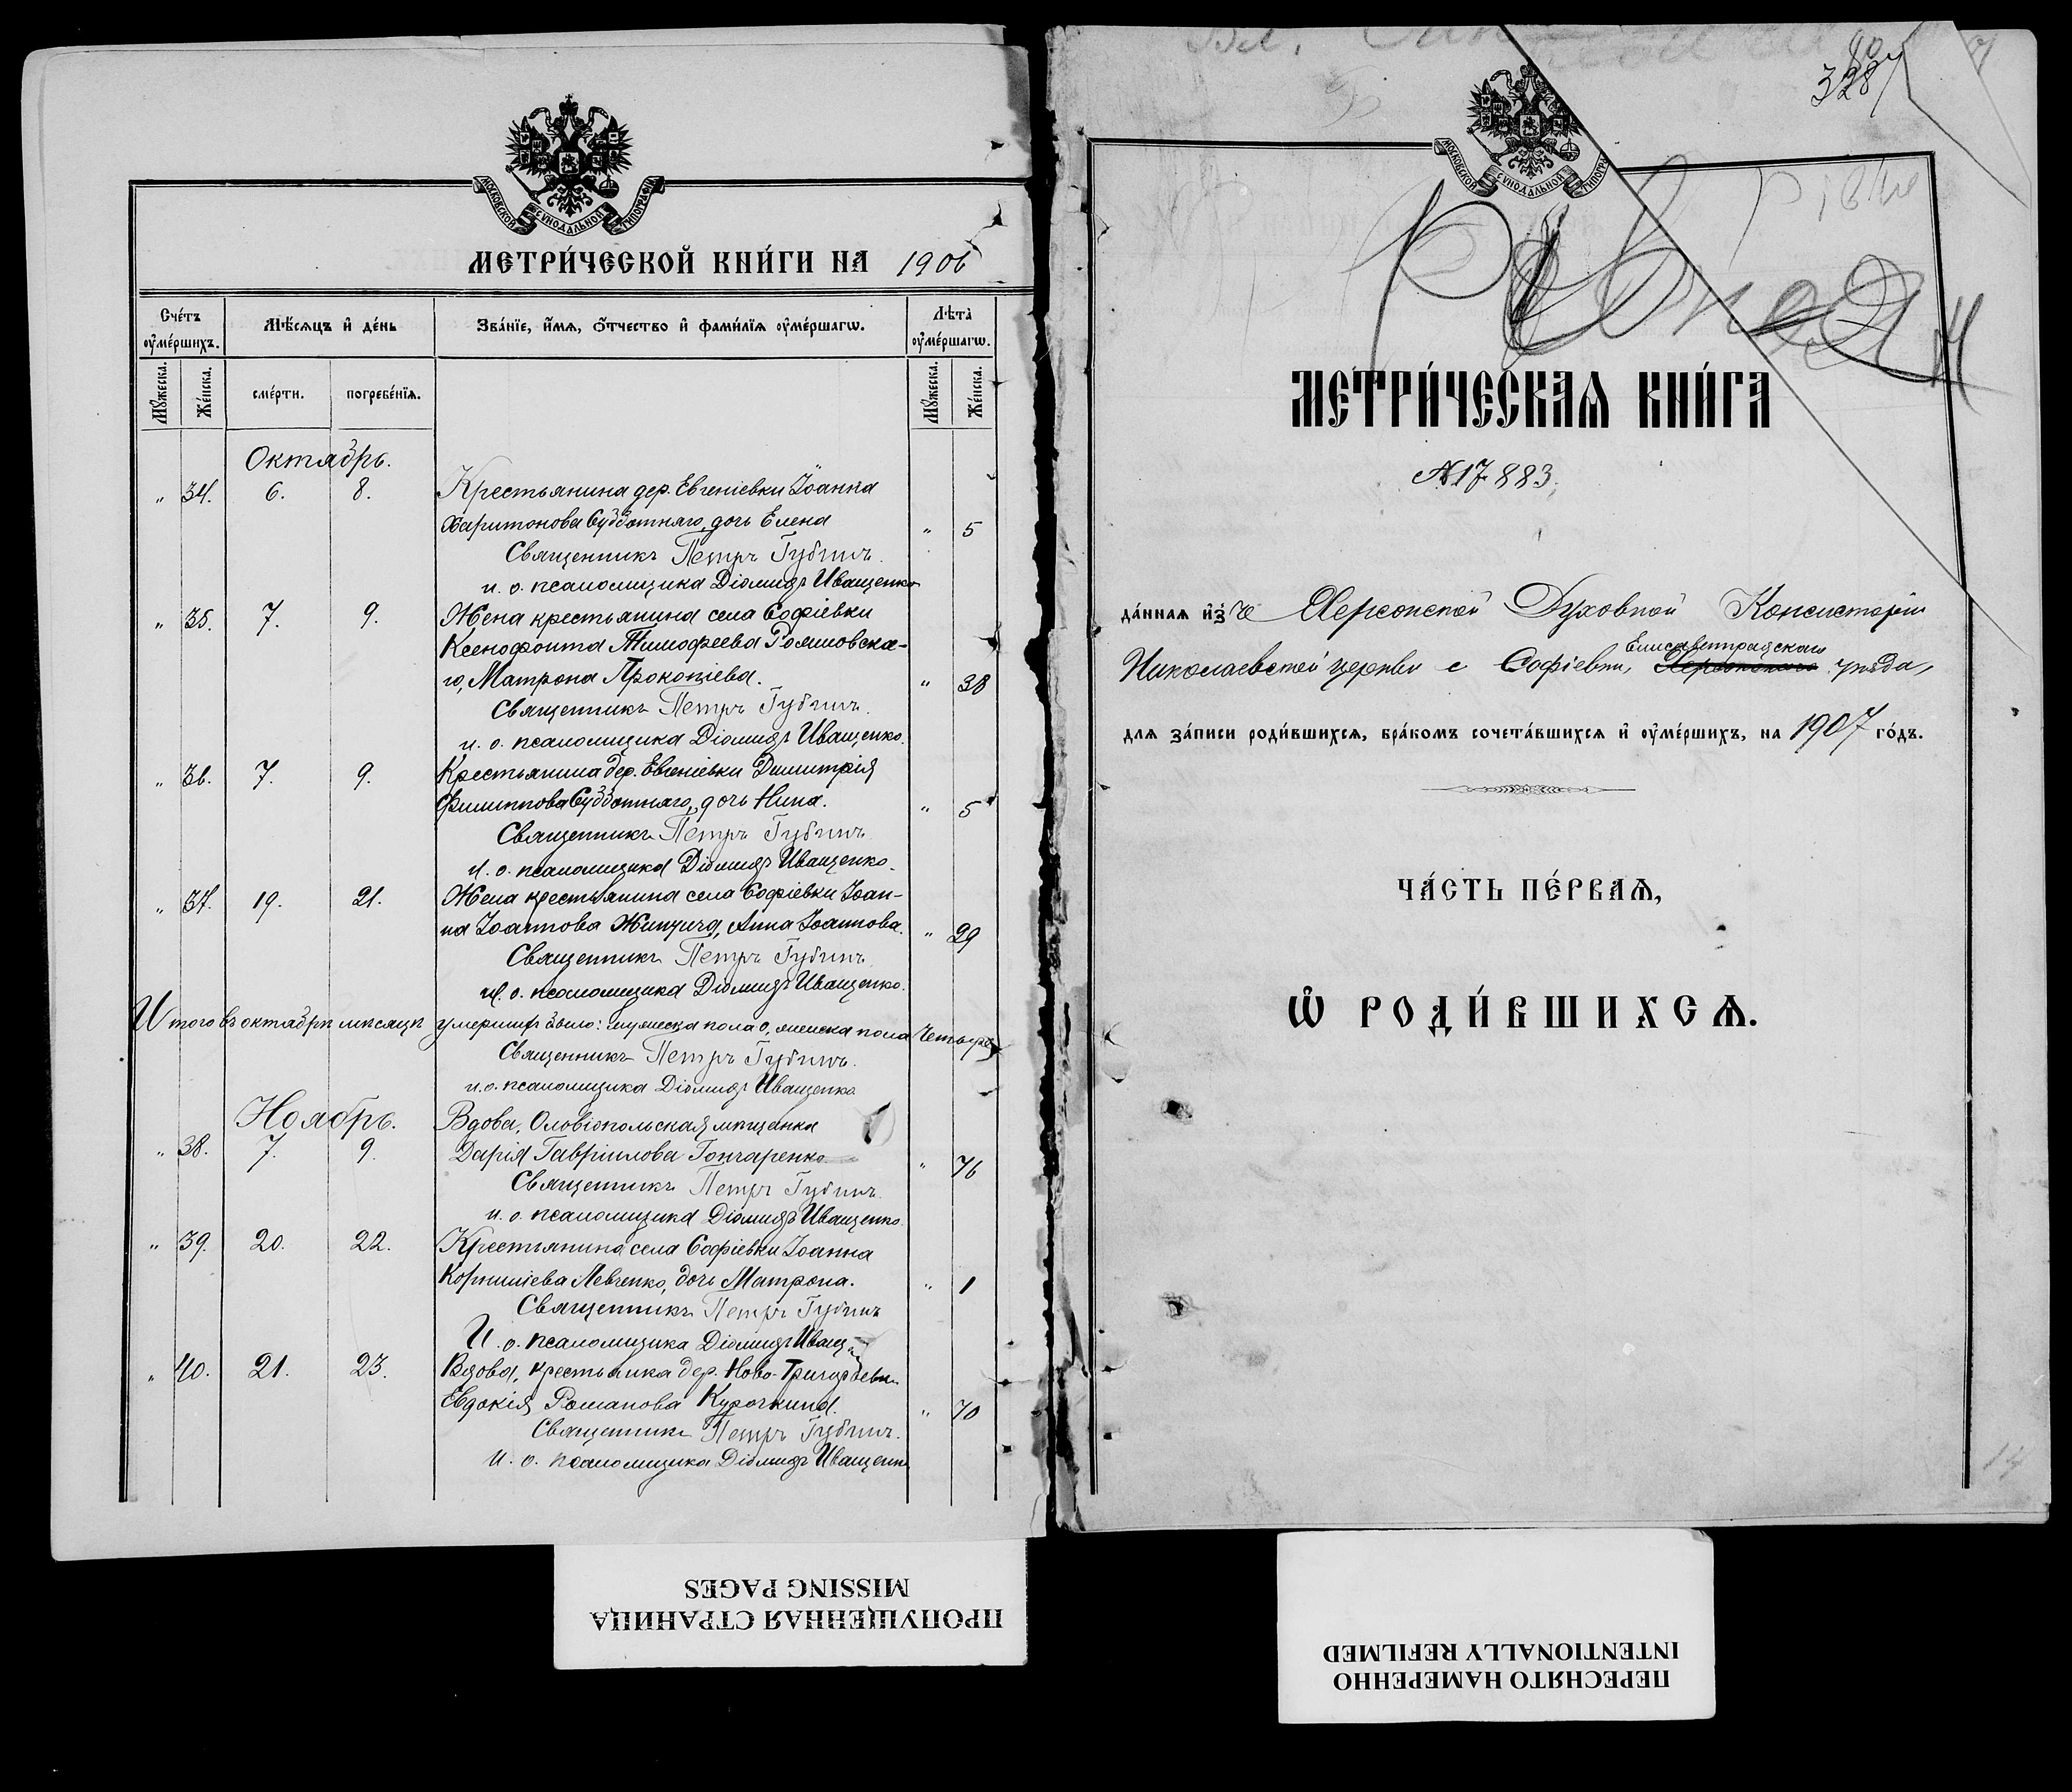 МОСКОВСКОЙ СѴНОДАЛЬНОЙ ТИПОГРАФІИ
МЕТРИ́ЧЕСКОЙ КНИ́ГИ НА 1906
Сче́тъ оу҆ме́ршихъ.
Мѣ́сяцъ и҆ де́нь
Зва́нїе, и҆́мѧ, ѻ҆́тчество и҆ фами́лїѧ оу҆ме́ршагѡ.
Лѣта̀ оу҆ме́ршагѡ.
Мꙋ́жеска.
Же́нска.
сме́рти.
погребе́нїѧ.
Мꙋ́жеска.
Же́нска.
Октябрь.
„ 34. 6. 8. Крестьянина дер. Евгеніевки Іоанна
Харитонова Субботняго, дочь Елена „ 5
Священникъ Петръ Губинъ.
и. о. псаломщика Діомидъ Иващенко
„ 35. 7. 9. Жена крестьянина села Софіевки
Ксенофонта Тимофеева
го, Матрона Прокопіева. „ 38
Священникъ Петръ Губинъ.
и. о. псаломщика Діомидъ Иващенко.
„ 36. 7. 9. Крестьянина дер. Евгеніевки Димитрія
Филиппова Субботняго, дочь Нина. „ 5
Священникъ Петръ Губинъ
и. о. псаломщика Діомидъ Иващенко.
„ 37. 19. 21. Жена крестьянина села Софіевки Іоан-
на Іоаннова Анна Іоаннова. „ 29
Священникъ Петръ Губинъ
и. о. псаломщика Діомидъ Иващенко.
Итого въ октябрѣ мѣсяцѣ умершихъ было: мужеска пола 0, женска пола четыре
Священникъ Петръ Губинъ.
и. о. псаломщика Діомидъ Иващенко
Ноябрь. Вдова, Оловіопольская мѣщанка
„ 38. 7. 9. Дарія Гавріилова Гончаренко „ 76
Священникъ Петръ Губинъ.
и. о. псаломщика Діомидъ Иващенко.
„ 39. 20. 22. Крестьянина села Софіевки Іоанна
Корниліева Левченко, дочь Матрона. „ 1
Священникъ Петръ Губинъ
И. о. псаломщика Діомидъ Иващ
„ 40. 21. 23. Вдова, крестьянка дер. Ново-Григорьевки
Евдокія Романова Курочкина. „ 70
Священникъ Петръ Губинъ.
и. о. псаломщика Діомидъ Иващенко
ПРОПУЩЕННАЯ СТРАНИЦА
MISSING PAGES
328
МОСКОВСКОЙ СѴНОДАЛЬНОЙ ТИПОГРА
МЕТРИ́ЧЕСКАѦ КНИ́ГА
№ 17883.
да́ннаѧ и҆з̾ Херсонской Духовной Консисторіи
Елисаветградскаго
Николаевской церкви с Софіевки, Херсонскаго уѣзда,
длѧ за́писи роди́вшихсѧ, бра́комъ сочета́вшихсѧ и҆ оу҆ме́ршихъ, на 1907 го́дъ.
ЧА́СТЬ ПЕ́РВАѦ,
Ѡ҆ РОДИ́ВШИХСѦ.
14
ПЕРЕСНЯТО НАМЕРЕННО
INTENTIONALLY REFILMED